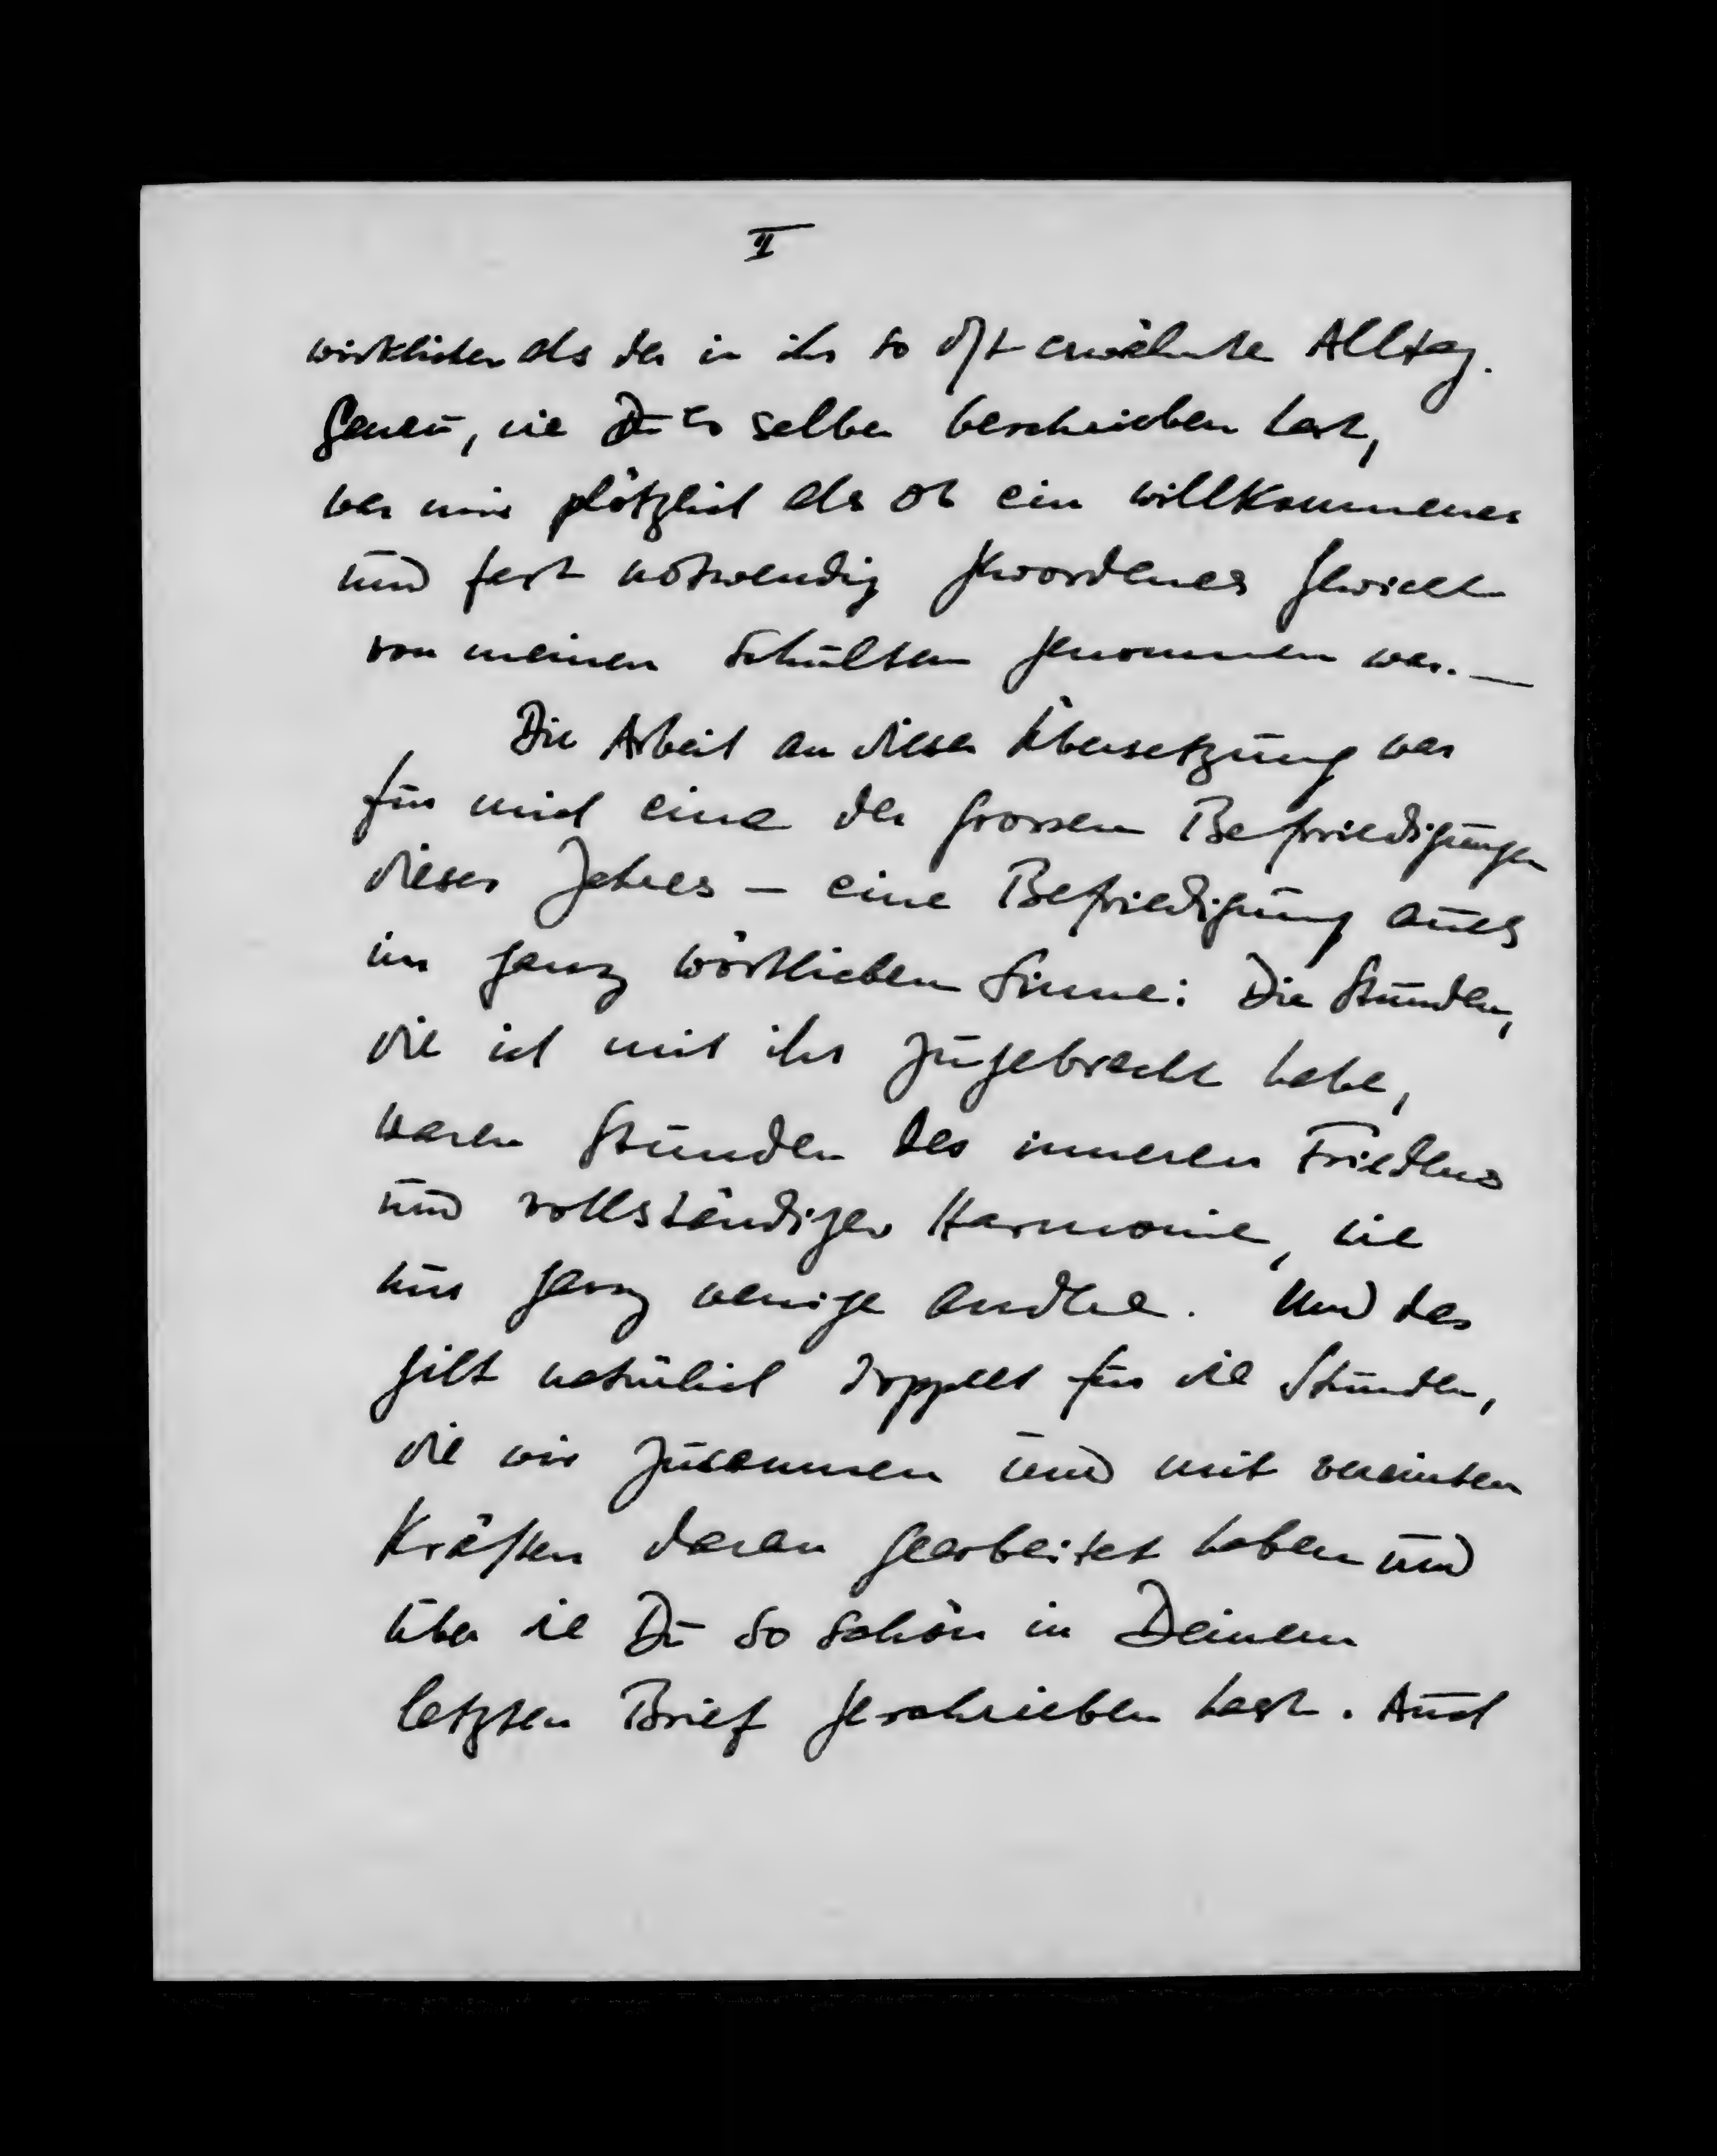 II
wirklicher als der in ihr so oft erwähnte Alltag.
Genau, wie Du es selber beschrieben hast,
war mir plötzlich als ob ein willkommenes
und fast notwendig gewordenes Gewicht
von meinen Schultern genommen war. —
Die Arbeit an dieser Übersetzung war
für mich eine der grossen Befriedigungen
dieses Jahres — eine Befriedigung auch
im ganz wörtlichen Sinne: Die Stunden,
die ich mit ihr zugebracht habe,
waren Stunden des inneren Friedens
und vollständiger Harmonie, wie
nur ganz wenige andere. Und das
gilt natürlich doppelt für die Stunden,
die wir zusammen und mit vereinten
Kräften daran gearbeitet haben und
über die Du so schön in Deinem
letzten Brief geschrieben hast. Auch